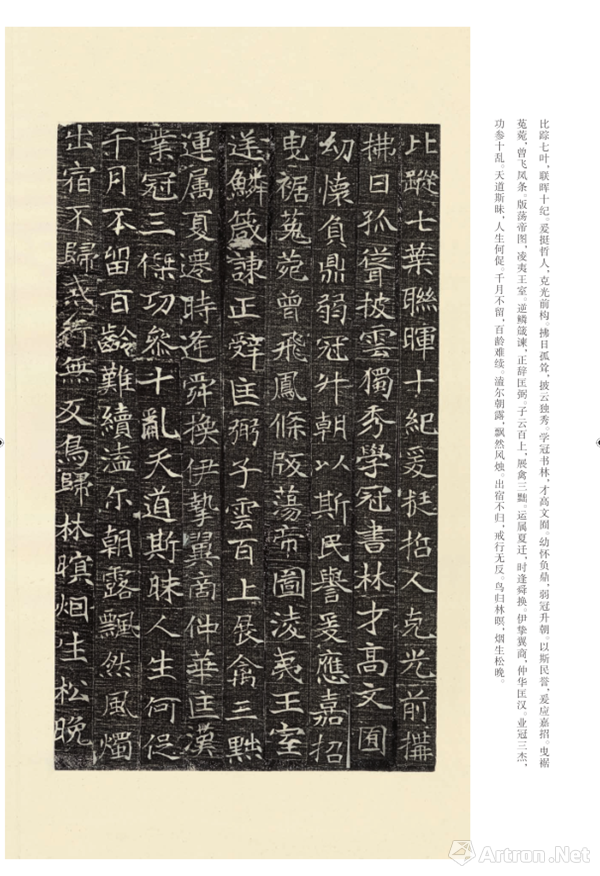 比踪七叶，联晖十纪。爰挺哲人，克光前构。拂日孤耸，披云独秀。学冠书林，才高文囿。幼怀负鼎，弱冠升朝。以斯民誉，爰应嘉招。曳裾
菟菀，曾飞凤条。版荡帝图，凌夷王室。逆鳞箴谏，正辞匡弼。子云百上，展禽三黜。运属夏迁，时逢舜换。伊挚翼商，仲华匡汉。业冠三杰，
功参十乱。天道斯昧，人生何促。千月不留，百龄难续。溘尔朝露，飘然风烛。出宿不归，戒行无反。鸟归林暝，烟生松晚。
比蹤七葉聯暉十紀爰挺喆人克光前搆
拂日孤聳披雲獨秀學冠書林才高文囿
幼懷負鼎弱冠升朝以斯民譽爰應嘉招
曳裾菟菀曾飛鳳條版蕩帝圖淩夷王室
逆鱗箴諫正辭匡弼子雲百上展禽三黜
運属夏遷時逢舜換伊摯翼商仲華匡漢
業冠三傑功參十亂天道斯昧人生何促
千月不留百齡難續溘尔朝露飄然風燭
出宿不歸戒行無反鳥歸林暝烟生松晚
Artron.Net